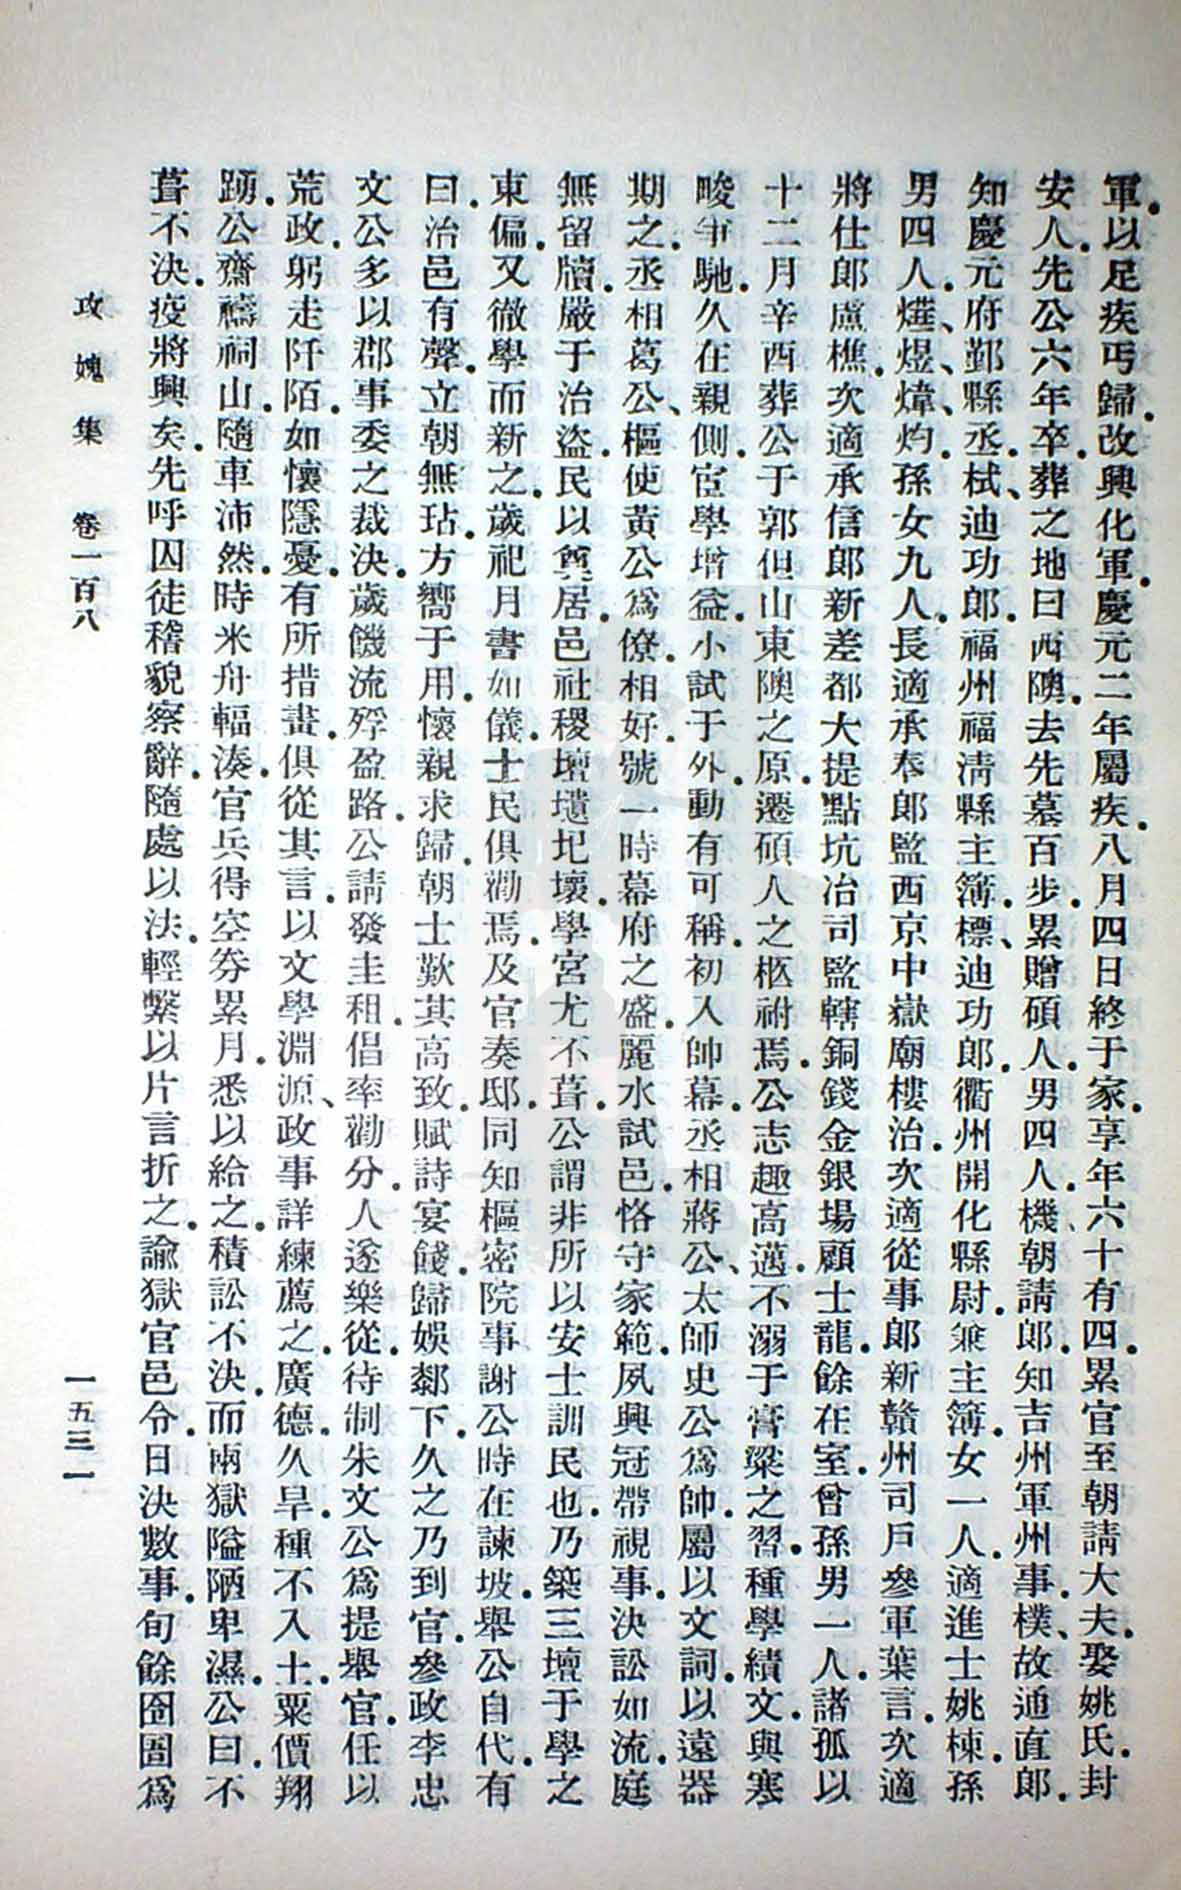 軍.以足疾丐歸.改興化軍.慶元二年屬疾.八月四日終于家.享年六十有四.累官至朝請大夫.娶姚氏.封
安人.先公六年卒.葬之地曰西隩.去先墓百步.累贈碩人.男四人.機、朝請郎.知吉州軍州事.樸、故通直郎.
知慶元府鄞縣丞.栻、迪功郎.福州福淸縣主簿.標、迪功郎.衢州開化縣尉.兼主簿.女一人.適進士姚棟.孫
男四人.燁、煜、煒、灼.孫女九人.長適承奉郎監西京中嶽廟樓治.次適從事郎新贛州司戶參軍葉言.次適
將仕郎盧樵.次適承信郎新差都大提點坑冶司監轄銅錢金銀場顧士龍.餘在室.曾孫男一人.諸孤以
十二月辛酉葬公于郭但山東隩之原.遷碩人之柩祔焉.公志趣高邁.不溺于膏粱之習.種學績文.與寒
畯爭馳.久在親側.宦學增益.小試于外.動有可稱.初入帥幕.丞相蔣公、太師史公爲帥.屬以文詞.以遠器
期之.丞相葛公、樞使黃公爲僚.相好.號一時幕府之盛.麗水試邑.恪守家範.夙興冠帶視事.決訟如流.庭
無留牘.嚴于治盜.民以奠居.邑社稷壇壝圮壞.學宮尤不葺.公謂非所以安士訓民也.乃築三壇于學之
東偏.又徹學而新之.歲祀月書如儀.士民俱勸焉.及官奏邸.同知樞密院事謝公時在諫坡.舉公自代.有
曰.治邑有聲.立朝無玷.方嚮于用.懷親求歸.朝士歎其高致.賦詩宴餞.歸娛鄰下.久之乃到官.參政李忠
文公多以郡事委之裁決.歲饑流殍盈路.公請發圭租.倡率勸分.人遂樂從.待制朱文公爲提舉官.任以
荒政.躬走阡陌.如懷隱憂.有所措畫.俱從其言.以文學淵源、政事詳練薦之.廣德久旱.種不入土.粟價翔
踴.公齋禱祠山.隨車沛然.時米舟輻湊.官兵得空券累月.悉以給之.積訟不決.而兩獄隘陋卑濕.公曰.不
葺不決.疫將興矣.先呼囚徒稽貌察辭.隨處以法.輕繫以片言折之.諭獄官邑令.日決數事.旬餘囹圄爲
攻媿集 卷一百八 一五三一